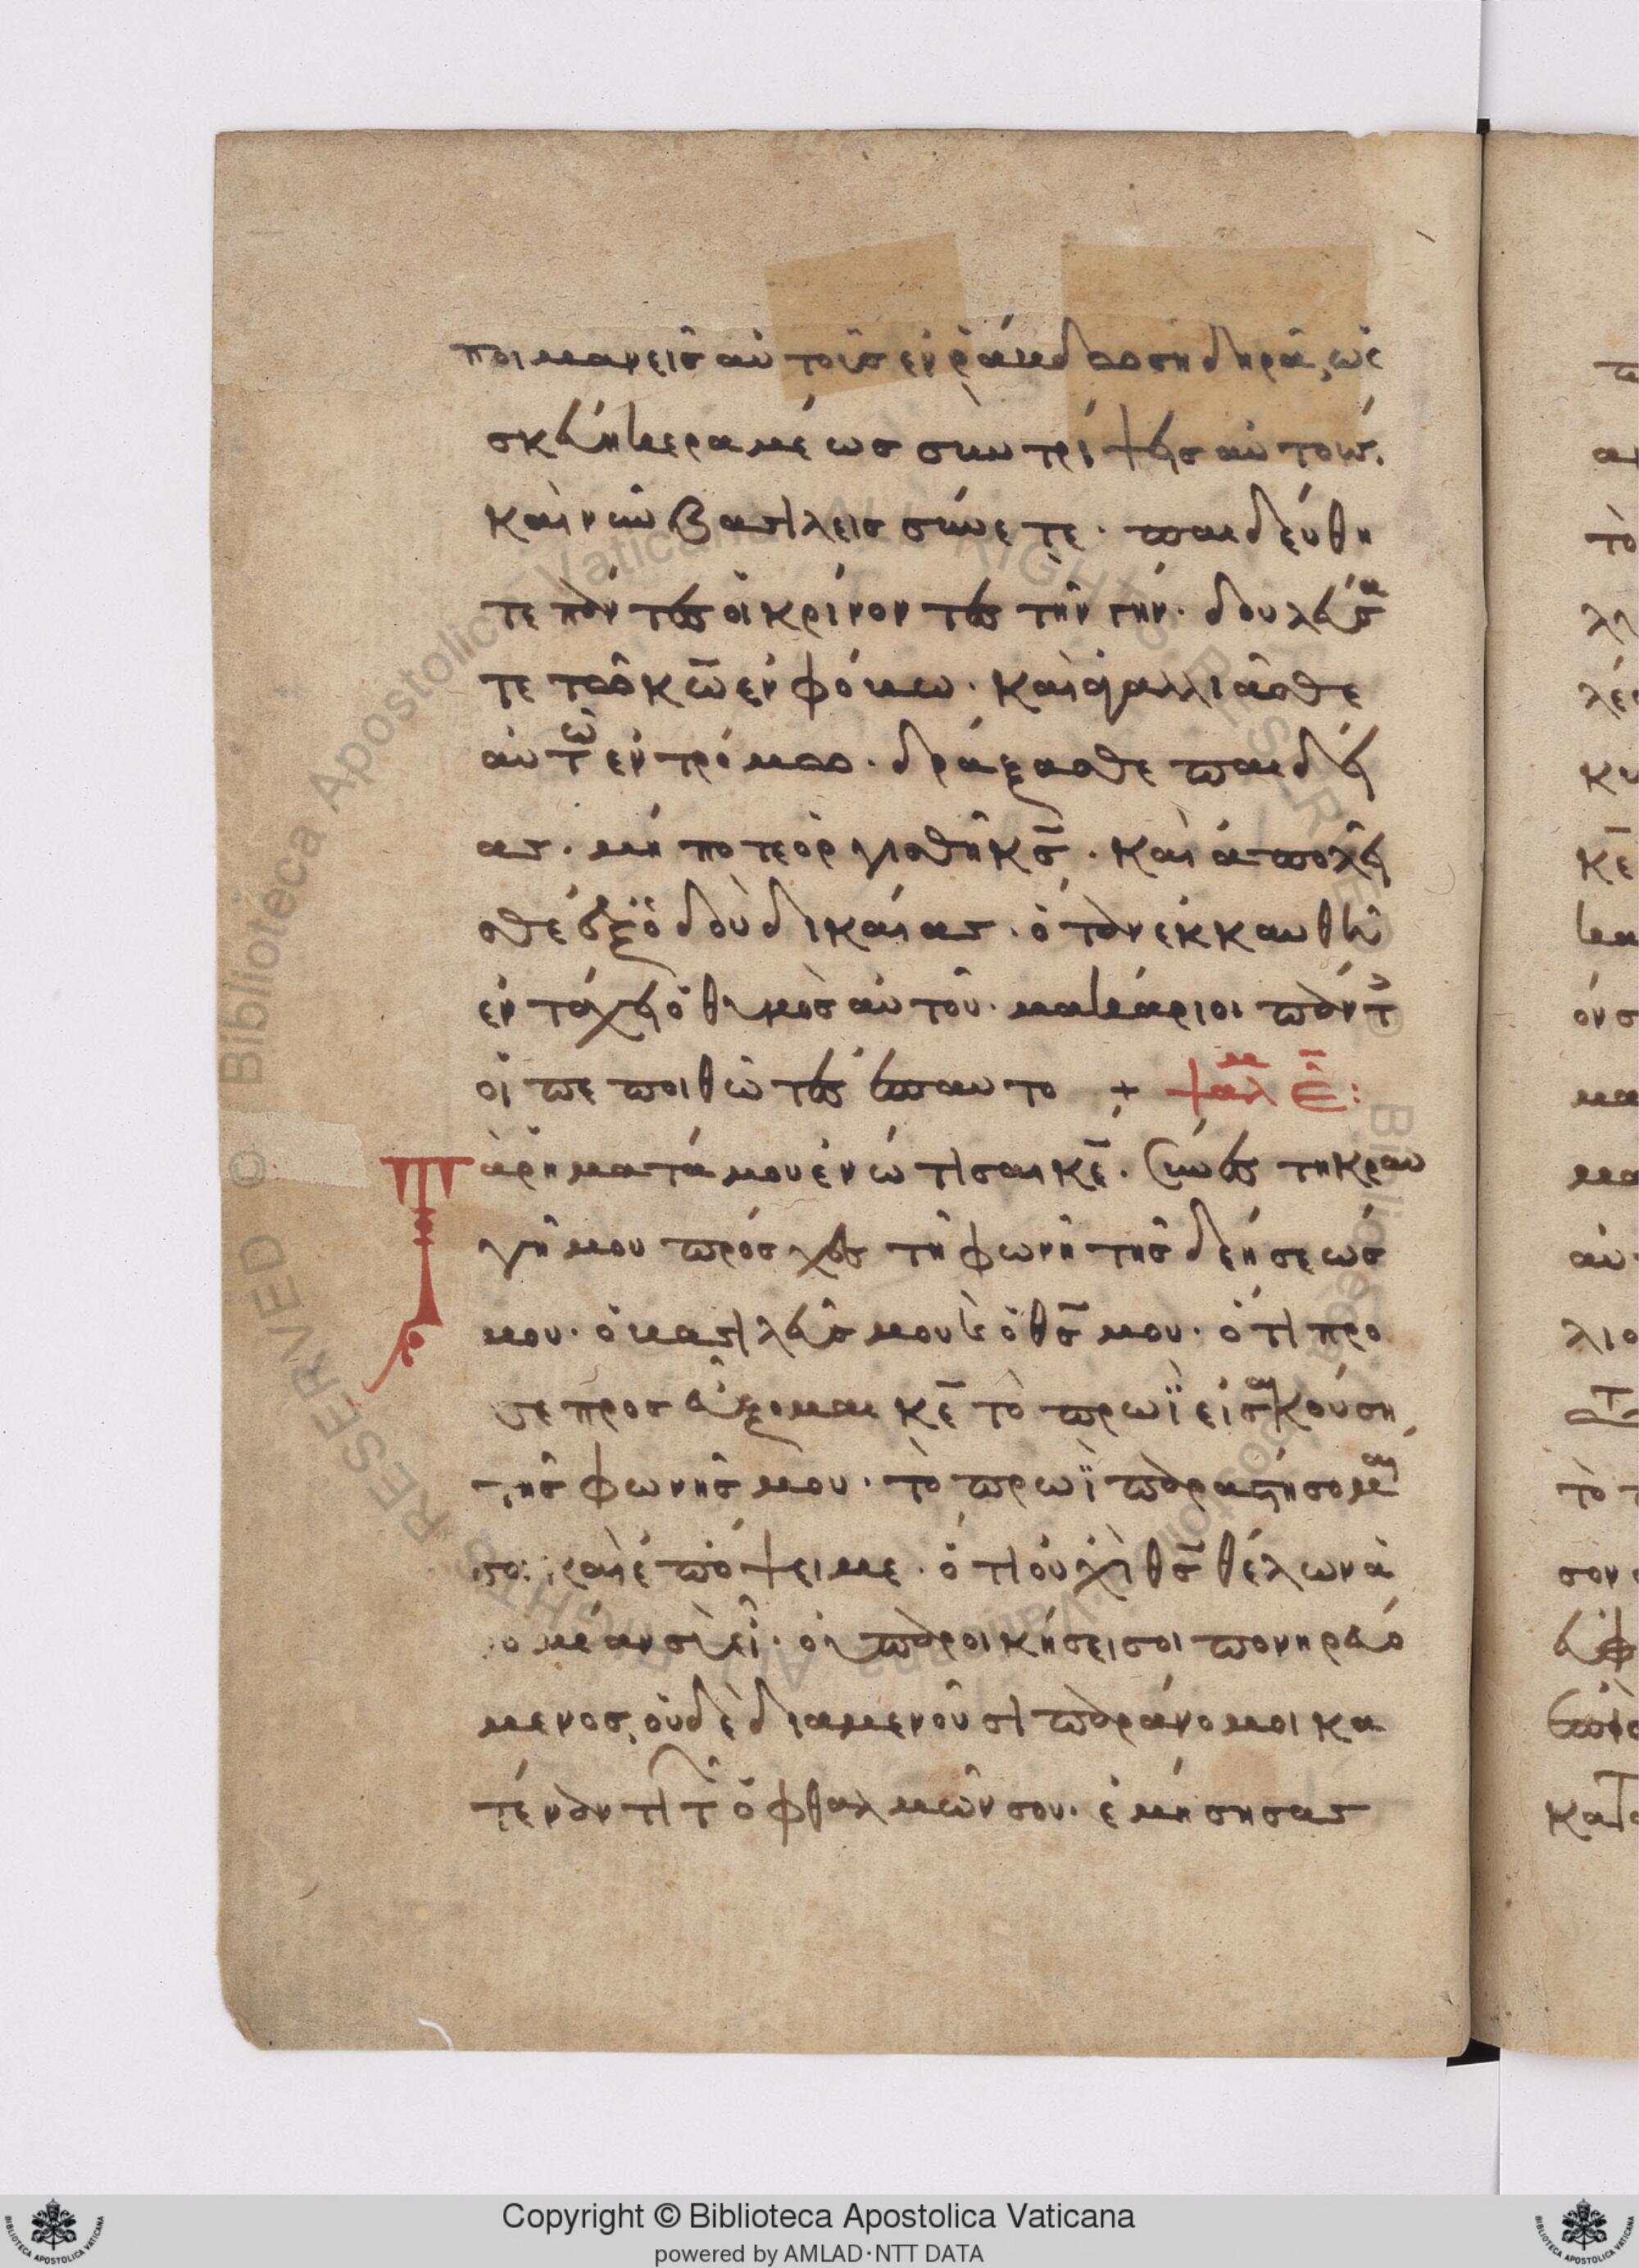 ποιμανεῖς αὐτοὺς ἐν ῥάβδω σηδηρᾶ, ὡς
σκεύη κεραμέως συντρίψεις αὐτούς.
καὶ νῦν βασιλεῖς σύνετε· παιδεύθη
τε πάντες οἱ κρίνοντες τὴν γῆν. δουλεύσα
τε τῶ κω̅ ἐν φόβω· καὶ ἀγαλλιᾶσθε
αὐτῶ ἐν τρόμω. δράξασθε παιδεί
ας. μήποτε ὀργισθῆ κς̅. καὶ ἀπολεῖ
σθε ἐξ ὁδοὺ δικαίας. ὅταν ἐκκαυθῆ
ἐν τάχει ὁ θυμὸς αὐτοῦ. μακάριοι πάντ
οἱ πεποιθότες ἐπ αυτο + ψαλμ ε̅:
Τὰ ρήματά μου ἐνώτισαι κε̅. σύνες τη κραυ
γῆ μου πρόσχες τῆ φωνῆ τῆς δεήσεως
μου. ὁ βασιλεύς μου κ ὁ θς̅ μου. ὅτι προ
σε προσεύξομαι κε̅ τὸ πρωῒ εἰσακούση
τῆς φωνῆς μου. τὸ πρωῒ παραστήσομαι
σοι καὶ ἐπόψει με. ὅτι οὐχὶ θς̅ θέλων ἀ
νομίαν σὺ εἶ. οὐ παροικήσει σοι πονηρευό
μενος, οὐδὲ διαμενοῦσι παράνομοι κα
τέναντι τ ὀφθαλμῶν σου. ἐμήσησας
Copyright © Biblioteca Apostolica Vaticana
powered by AMLAD·NTT DATA